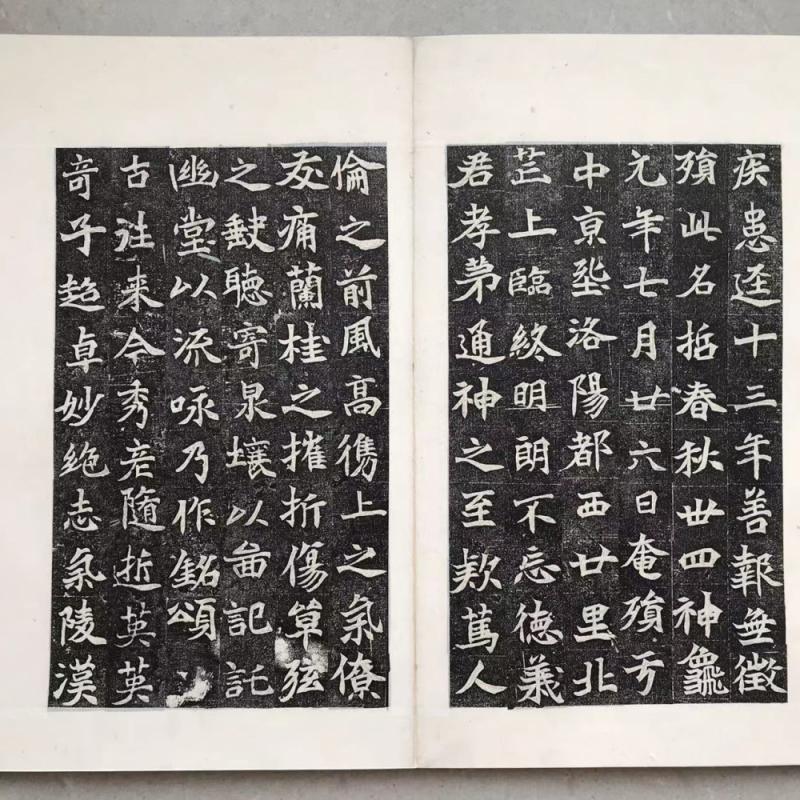 疾患迳十三年善報無徵
殞此名哲春秋丗四神龜
元年七月廿六日奄殞于
中京洛陽都西廿里北
芒上臨終明朗不忘德義
君孝弟通神之至欵篤人
倫之前風高儁上之氣僚
友痛蘭桂之摧折傷草弦
之聽寄泉壤以啚記託
幽堂以流咏乃作銘頌
古往来今秀隨逝英英
奇子超卓妙絶志氣陵漠